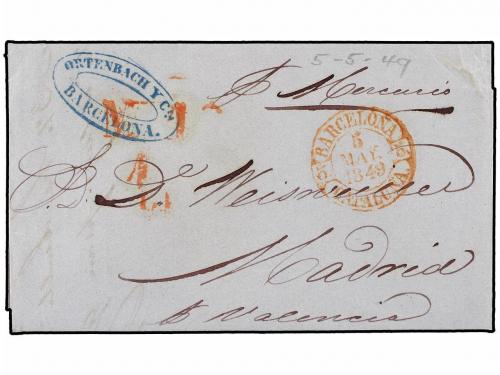 5-5-49
ORTENBACH Y Cª
BARCELONA.
p. Mercurio
BARCELONA
5
MAY.
1849
CATALUÑA
S. D. De Weisweiller
Madrid
p. Valencia